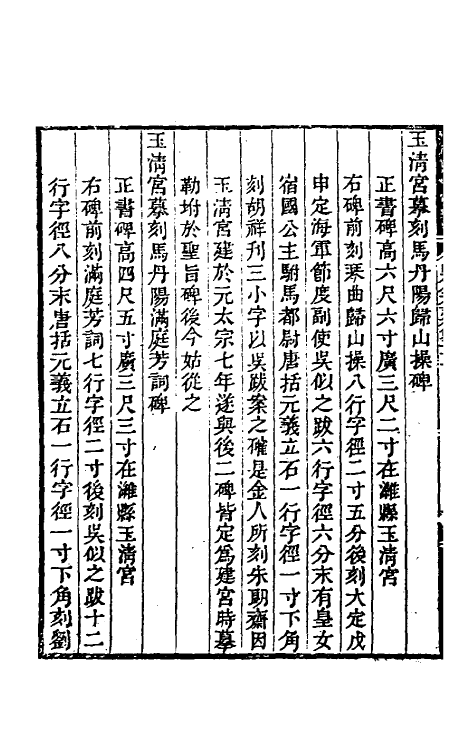 玉淸宮摹刻馬丹陽歸山操碑
正書碑高六尺六寸廣三尺二寸在濰縣玉淸宮
右碑前刻琴曲歸山操八行字徑二寸五分後刻大定戊
申定海軍節度副使吳似之跋六行字徑六分末有皇女
宿國公主駙馬都尉唐括元義立石一行字徑一寸下角
刻胡祥刊三小字以吳跋案之確是金人所刻朱朗齋因
玉淸宮建於元太宗七年遂與後二碑皆定爲建宮時摹
勒坿於聖旨碑後今姑從之
玉淸宮摹刻馬丹陽滿庭芳詞碑
正書碑高四尺五寸廣三尺三寸在濰縣玉淸宮
右碑前刻滿庭芳詞七行字徑二寸後刻吳似之跋十二
行字徑八分末唐括元義立石一行字徑一寸下角刻劉